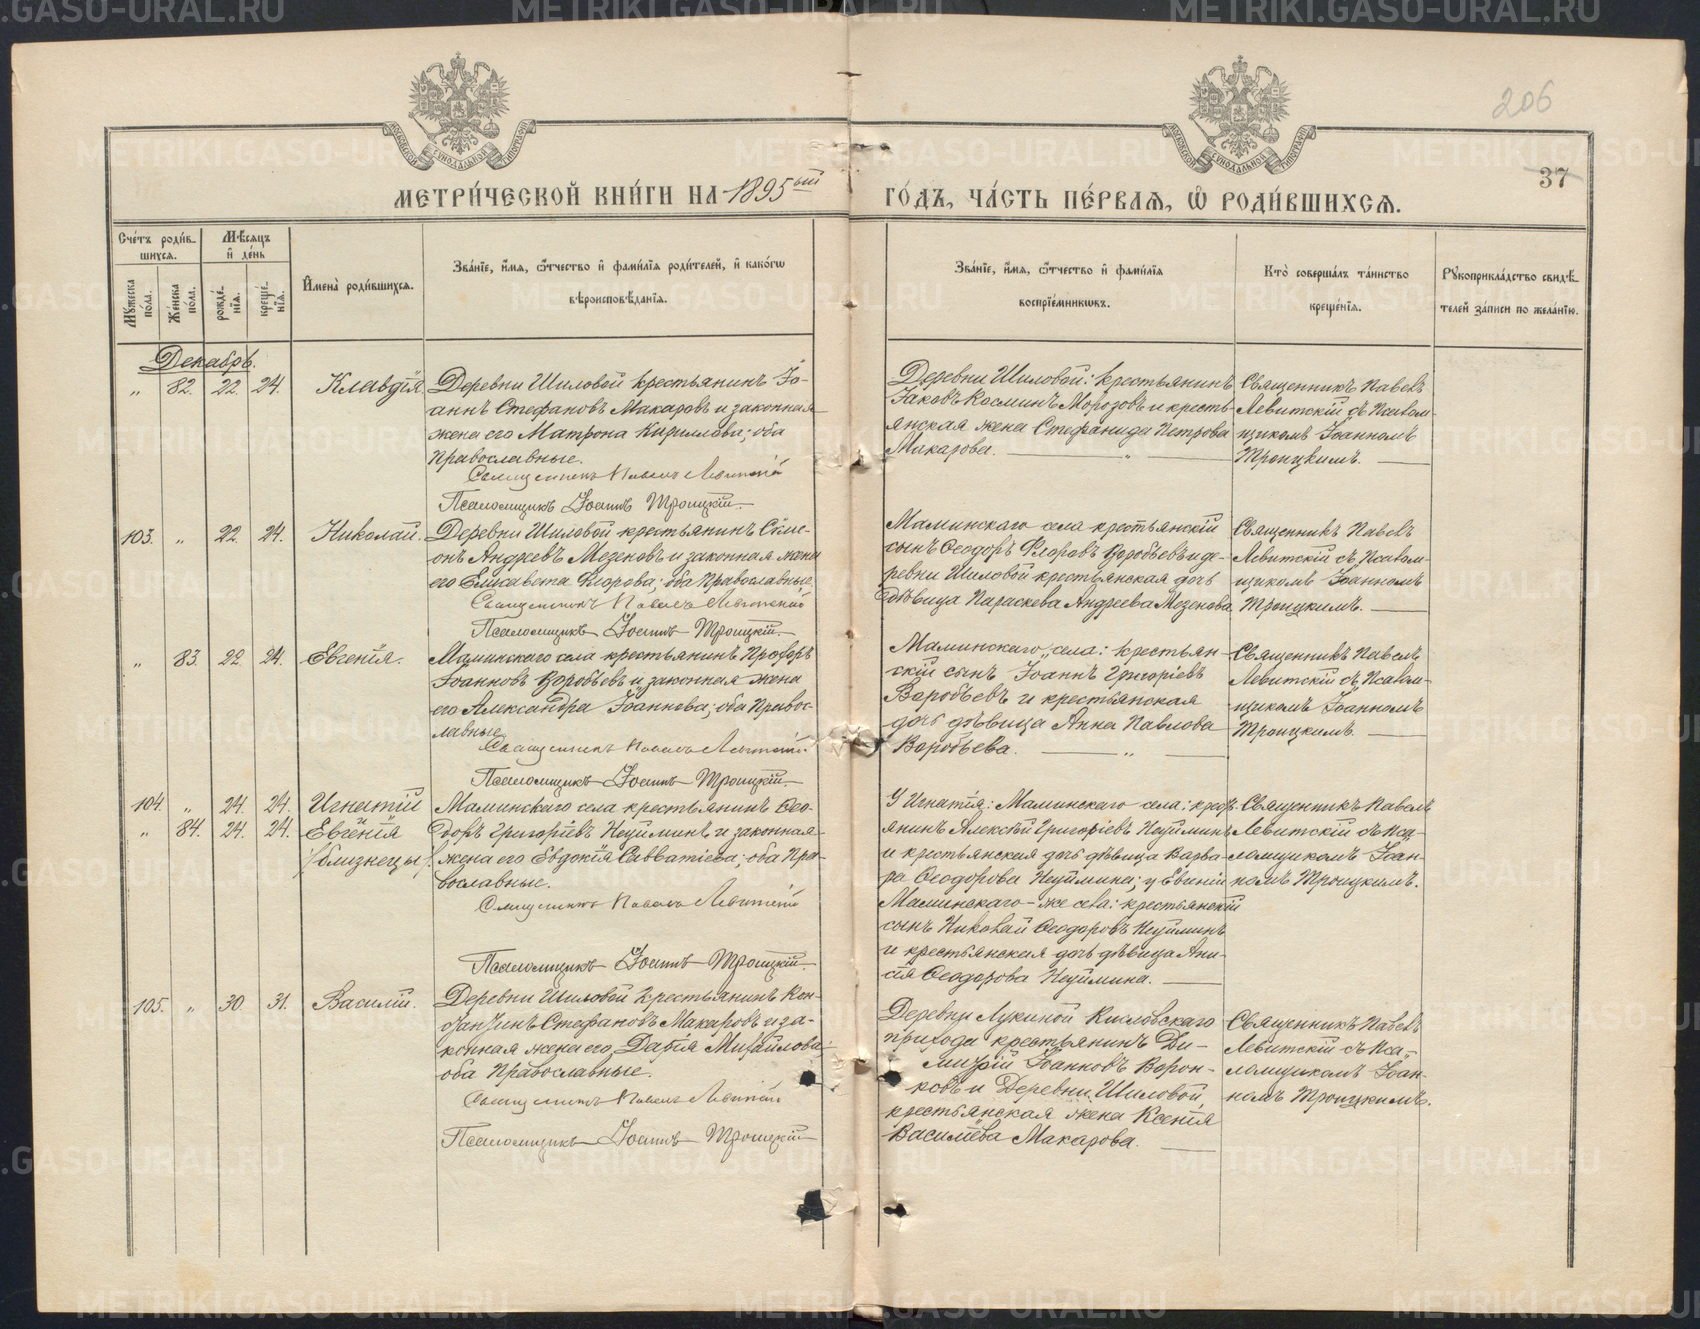 206
37
МОСКОВСКОЙ СѴНОДАЛЬНОЙ ТИПОГРАФІИ
МОСКОВСКОЙ СѴНОДАЛЬНОЙ ТИПОГРАФІИ
МЕТРИ́ЧЕСКОЙ КНИ́ГИ НА 1895ый
ГО́ДЪ, ЧА́СТЬ ПЕ́РВАѦ, Ѽ РОДИ́ВШИХСѦ.
Сче́тъ роди́в-
шихся.
Мꙋ́жеска по́ла.
Же́нска по́ла.
Мѣ́сяцъ и҆ де́нь
рожде́-
нїѧ.
креще́-
нїѧ.
И҆мена̀ роди́вшихся.
Зва́нїе, и҆́мя, ѻ҆́тчество и҆ фами́лїя роди́телей, и҆ како́гѡ
вѣроисповѣ́данїя.
Зва́нїе, и҆́мя, ѻ҆́тчество и҆ фами́лїя
воспрїе́мникѡвъ.
Кто̀ соверша́лъ та́инство
креще́нїя.
Рꙋкоприкла́дство свидѣ́-
телей за́писи по жела́нїю.
Декабрь.
„ 82. 22. 24. Клавдія.
Деревни Шиловой крестьянинъ Іо-
аннъ Стефановъ Макаровъ и законная
жена его Матрона Кириллова; оба
Православные.
Священникъ Павелъ Левитскій
Псаломщикъ Іоаннъ Троицкій.
Деревни Шиловой: крестьянинъ
Іаковъ Косминъ Морозовъ и кресть-
янская жена Стефанида Петрова
Макарова. „
Священникъ Павелъ
Левитскій съ Псалом-
щикомъ Іоанномъ
Троицкимъ.
103. „ 22. 24. Николай.
Деревни Шиловой крестьянинъ Симе-
онъ Андреевъ Мезеновъ и законная жена
его Елисавета Флорова; оба Православные.
Священникъ Павелъ Левитскій
Псаломщикъ Іоаннъ Троицкій.
Маминскаго села крестьянскій
сынъ Ѳеодоръ Флоровъ Воробьевъ и де-
ревни Шиловой крестьянская дочь
дѣвица Параскева Андреева Мезенова.
Священникъ Павелъ
Левитскій съ Псалом-
щикомъ Іоанномъ
Троицкимъ.
„ 83. 22. 24. Евгенія.
Маминскаго села крестьянинъ Прохоръ
Іоанновъ Воробьевъ и законная жена
его Александра Іоаннова; оба Правос-
лавные.
Священникъ Павелъ Левитскій
Псаломщикъ Іоаннъ Троицкій.
Маминскаго села: крестьян-
скій сынъ Іоаннъ Григоріевъ
Воробьевъ и крестьянская
дочь дѣвица Анна Павлова
Воробьева. „
Священникъ Павелъ
Левитскій съ Псалом-
щикомъ Іоанномъ
Троицкимъ.
104. „ 24. 24. Игнатій
„ 84. 24. 24. Евгенія
/близнецы/.
Маминскаго села крестьянинъ Ѳео-
доръ Григоріевъ Неуйминъ и законная
жена его Евдокія Савватіева; оба Пра-
вославные.
Священникъ Павелъ Левитскій
Псаломщикъ Іоаннъ Троицкій.
У Игнатія: Маминскаго села: крест-
янинъ Алексѣй Григоріевъ Неуйминъ
и крестьянская дочь дѣвица Варва-
ра Ѳеодорова Неуймина; у Евгеніи
Маминскаго-же села: крестьянскій
сынъ Николай Ѳеодоровъ Неуйминъ
и крестьянская дочь дѣвица Ани-
сія Ѳеодорова Неуймина.
Священникъ Павелъ
Левитскій съ Пса-
ломщикомъ Іоан-
номъ Троицкимъ.
105. „ 30. 31. Василій.
Деревни Шиловой крестьянинъ Кон-
стантинъ Стефановъ Макаровъ и за-
конная жена его Дарія Михайлова;
оба Православные.
Священникъ Павелъ Левитскій
Псаломщикъ Іоаннъ Троицкій
Деревни Лукиной Кисловскаго
прихода крестьянинъ Ди-
митрій Іоанновъ Ворон-
ковъ и Деревни Шиловой,
крестьянская жена Ксенія
Василіева Макарова.
Священникъ Павелъ
Левитскій съ Пса-
ломщикомъ Іоан-
номъ Троицкимъ.
METRIKI.GASO-URAL.RU